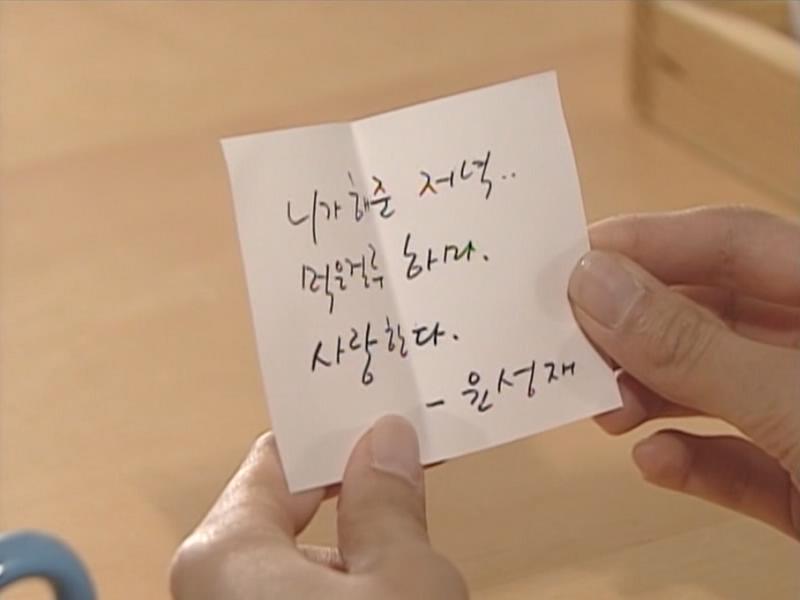 니가 해준 저녁..
먹은걸루 하마.
사랑한다.
- 윤성재